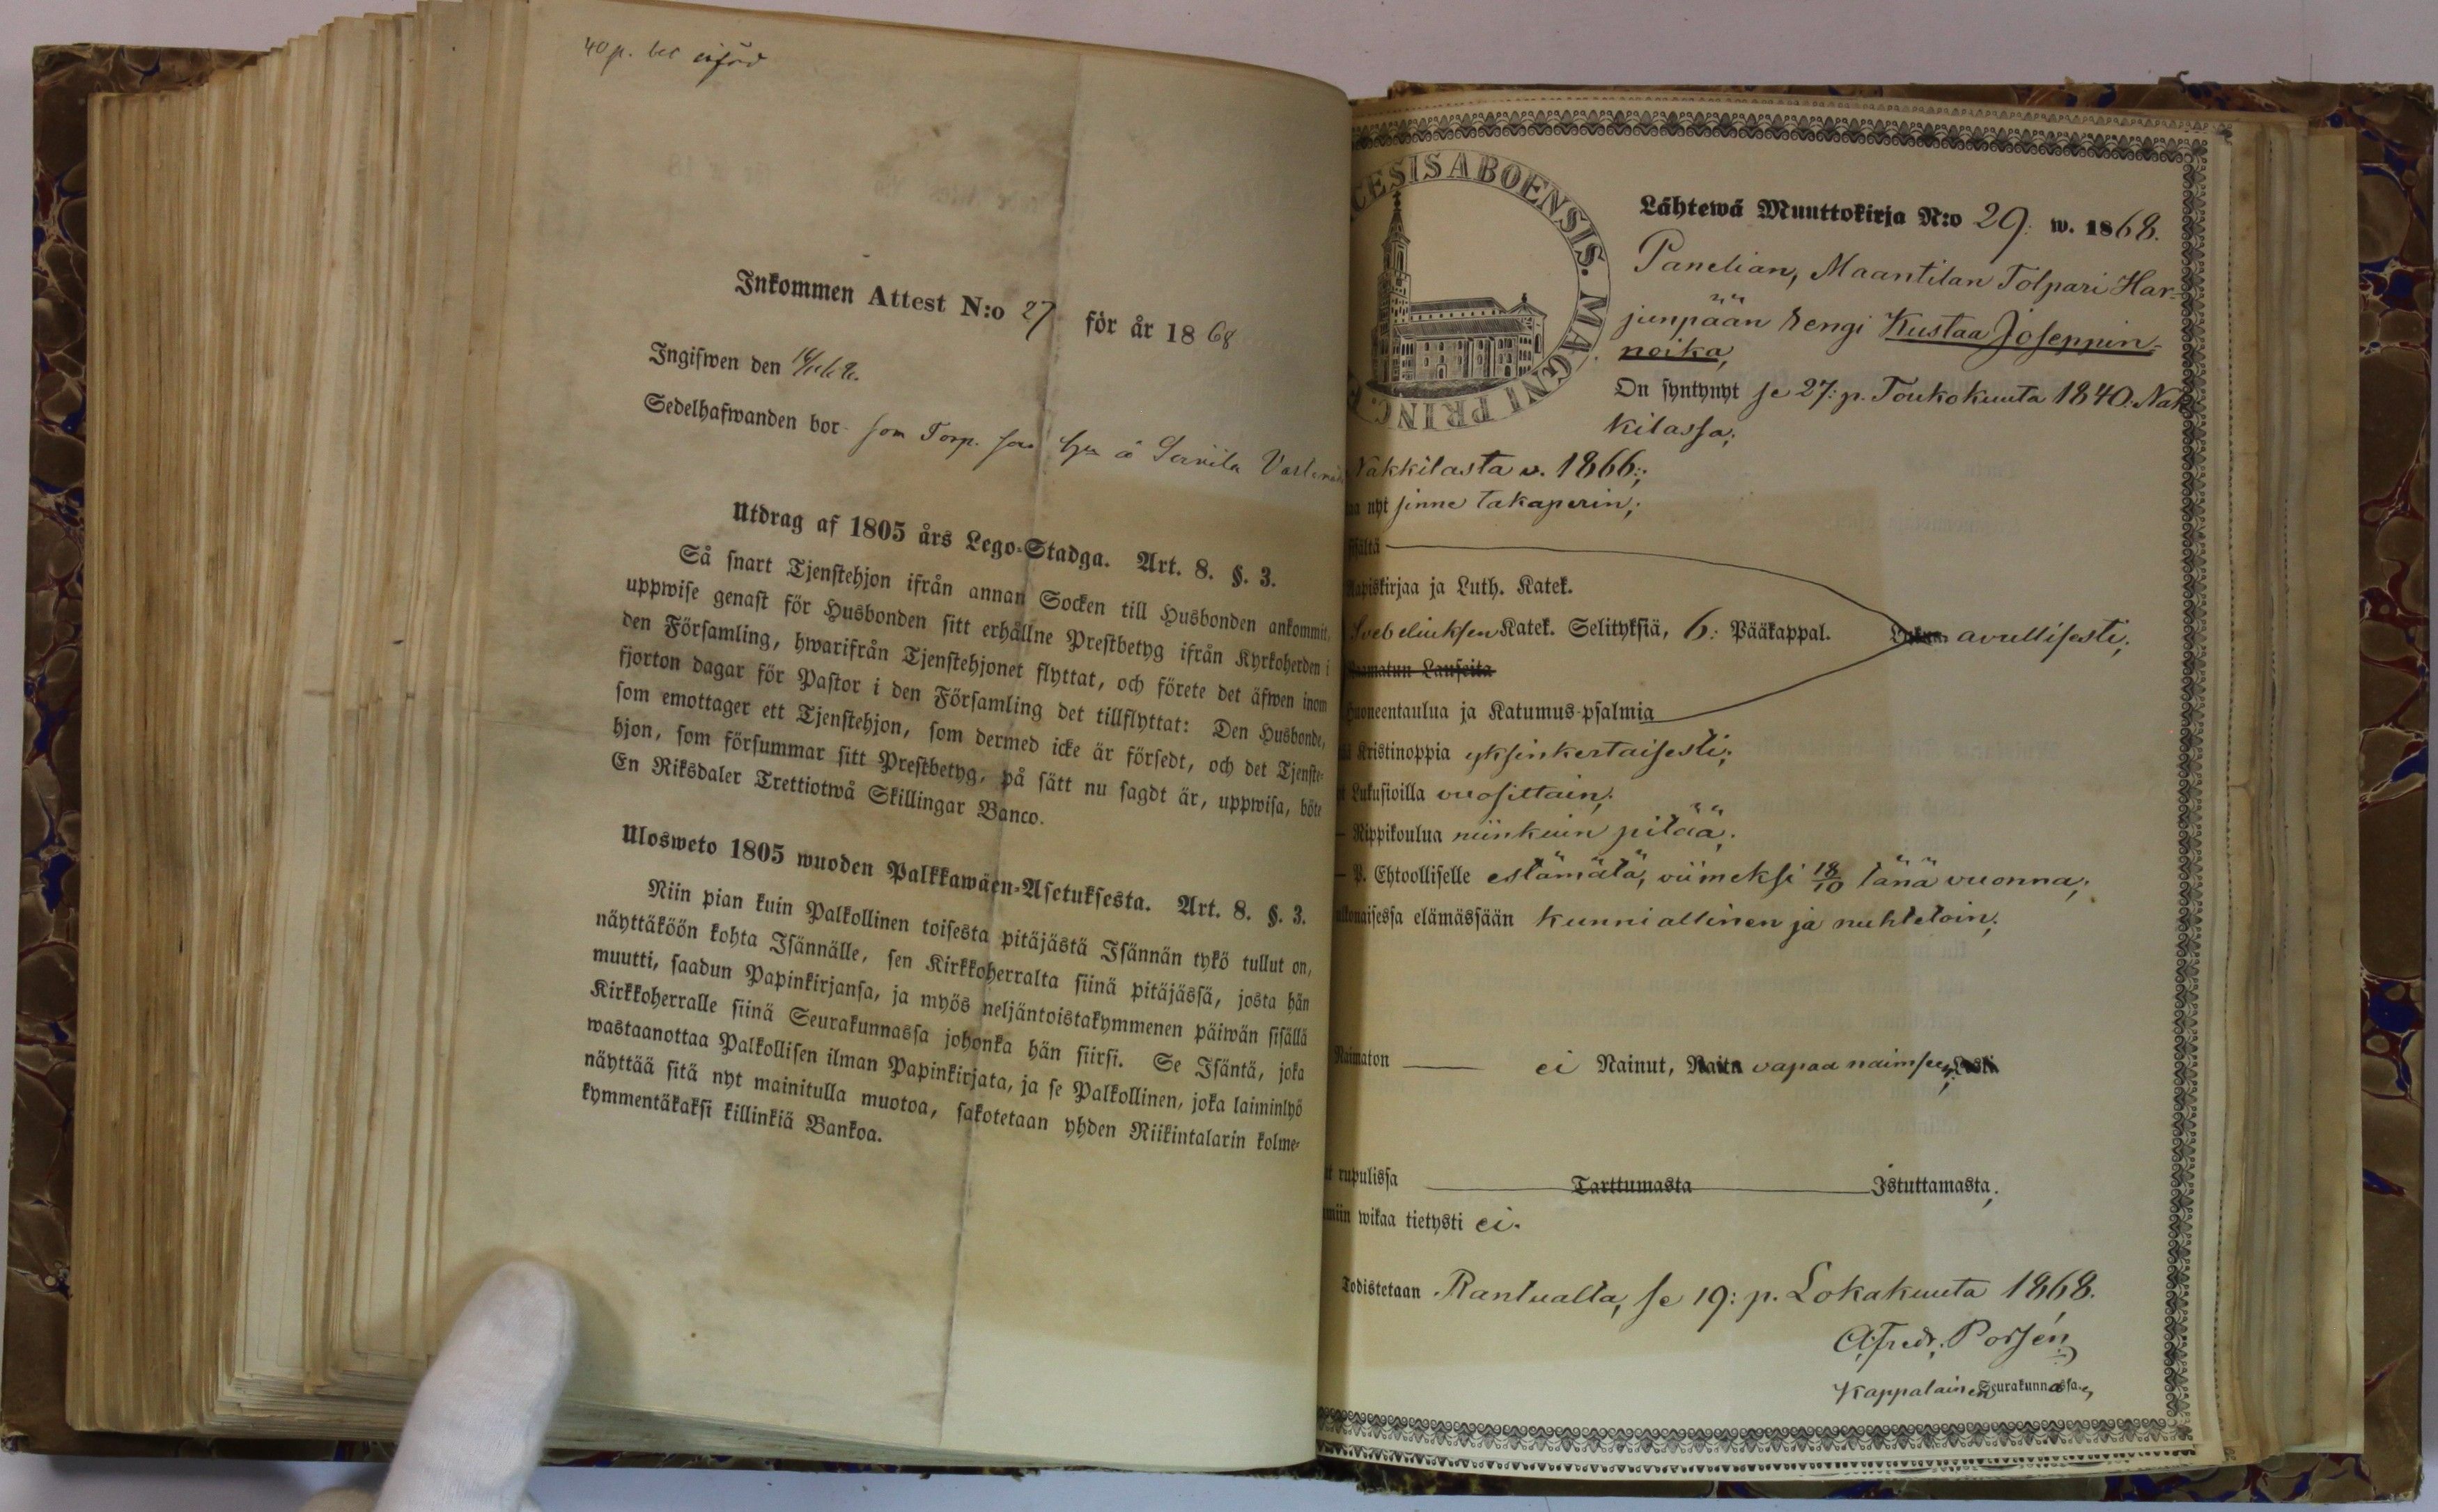 40 p.
Inkommen Attest N:o 27 för år 1868
Ingifwen den
Sedelhafwanden bor som Torp. å
Utdrag af 1805 års Lego-Stadga. Art. 8. §. 3.
Så snart Tjenstehjon ifrån annan Socken till Husbonden ankommit,
uppwise genast för Husbonden sitt erhållne Prestbetyg ifrån Kyrkoherden i
den Församling, hwarifrån Tjenstehjonet flyttat, och förete det äfwen inom
fjorton dagar för Pastor i den Församling det tillflyttat: Den Husbonde,
som emottager ett Tjenstehjon, som dermed icke är försedt, och det Tjenste-
hjon, som försummar sitt Prestbetyg, på sätt nu sagdt är, uppwisa, böte
En Riksdaler Trettiotwå Skillingar Banco.
Ulosweto 1805 wuoden Palkkawäen-Asetuksesta. Art. 8. §. 3.
Niin pian kuin Palkollinen toisesta pitäjästä Isännän tykö tullut on,
näyttäköön kohta Isännälle, sen Kirkkoherralta siinä pitäjässä, josta hän
muutti, saadun Papinkirjansa, ja myös neljäntoistakymmenen päiwän sisällä
Kirkkoherralle siinä Seurakunnassa johonka hän siirsi. Se Isäntä, joka
wastaanottaa Palkollisen ilman Papinkirjata, ja se Palkollinen, joka laiminlyö
näyttää sitä nyt mainitulla muotoa, sakotetaan yhden Riikintalarin kolme-
kymmentäkaksi killinkiä Bankoa.
CESIS ABOENSIS. MAGNI PRINC.
Lähtewä Muuttokirja N:o 29. w. 1868.
Panelian, Maantilan Tolpari Har-
junpään rengi Kustaa Joseppin-
noika,
On syntynyt se 27: p. Toukokuuta 1840. Nak-
kilassa;
Nakkilasta v. 1866;
nyt sinne takaperin;
sisältä
Aapiskirjaa ja Luth. Katek.
Svebeliuksen Katek. Selityksiä, 6: Pääkappal. avullisesti;
Raamatun Lauseita
Huoneentaulua ja Katumus-psalmia
Kristinoppia yksinkertaisesti;
Lukusioilla vuosittain;
Rippikoulua niinkuin pitää;
P. Ehtoolliselle estämätä, viimeksi 18/10 tänä vuonna;
ulkonaisessa elämässään kunniallinen ja nuhteloin;
Naimaton ei Nainut, vapaa naimseen;
rupulissa Tarttumasta Istuttamasta;
wikaa tietysti ei.
Todistetaan Rantualla, se 19: p. Lokakuuta 1868.
A. Fredr. Porsén
Kappalainen Seurakunnassa.